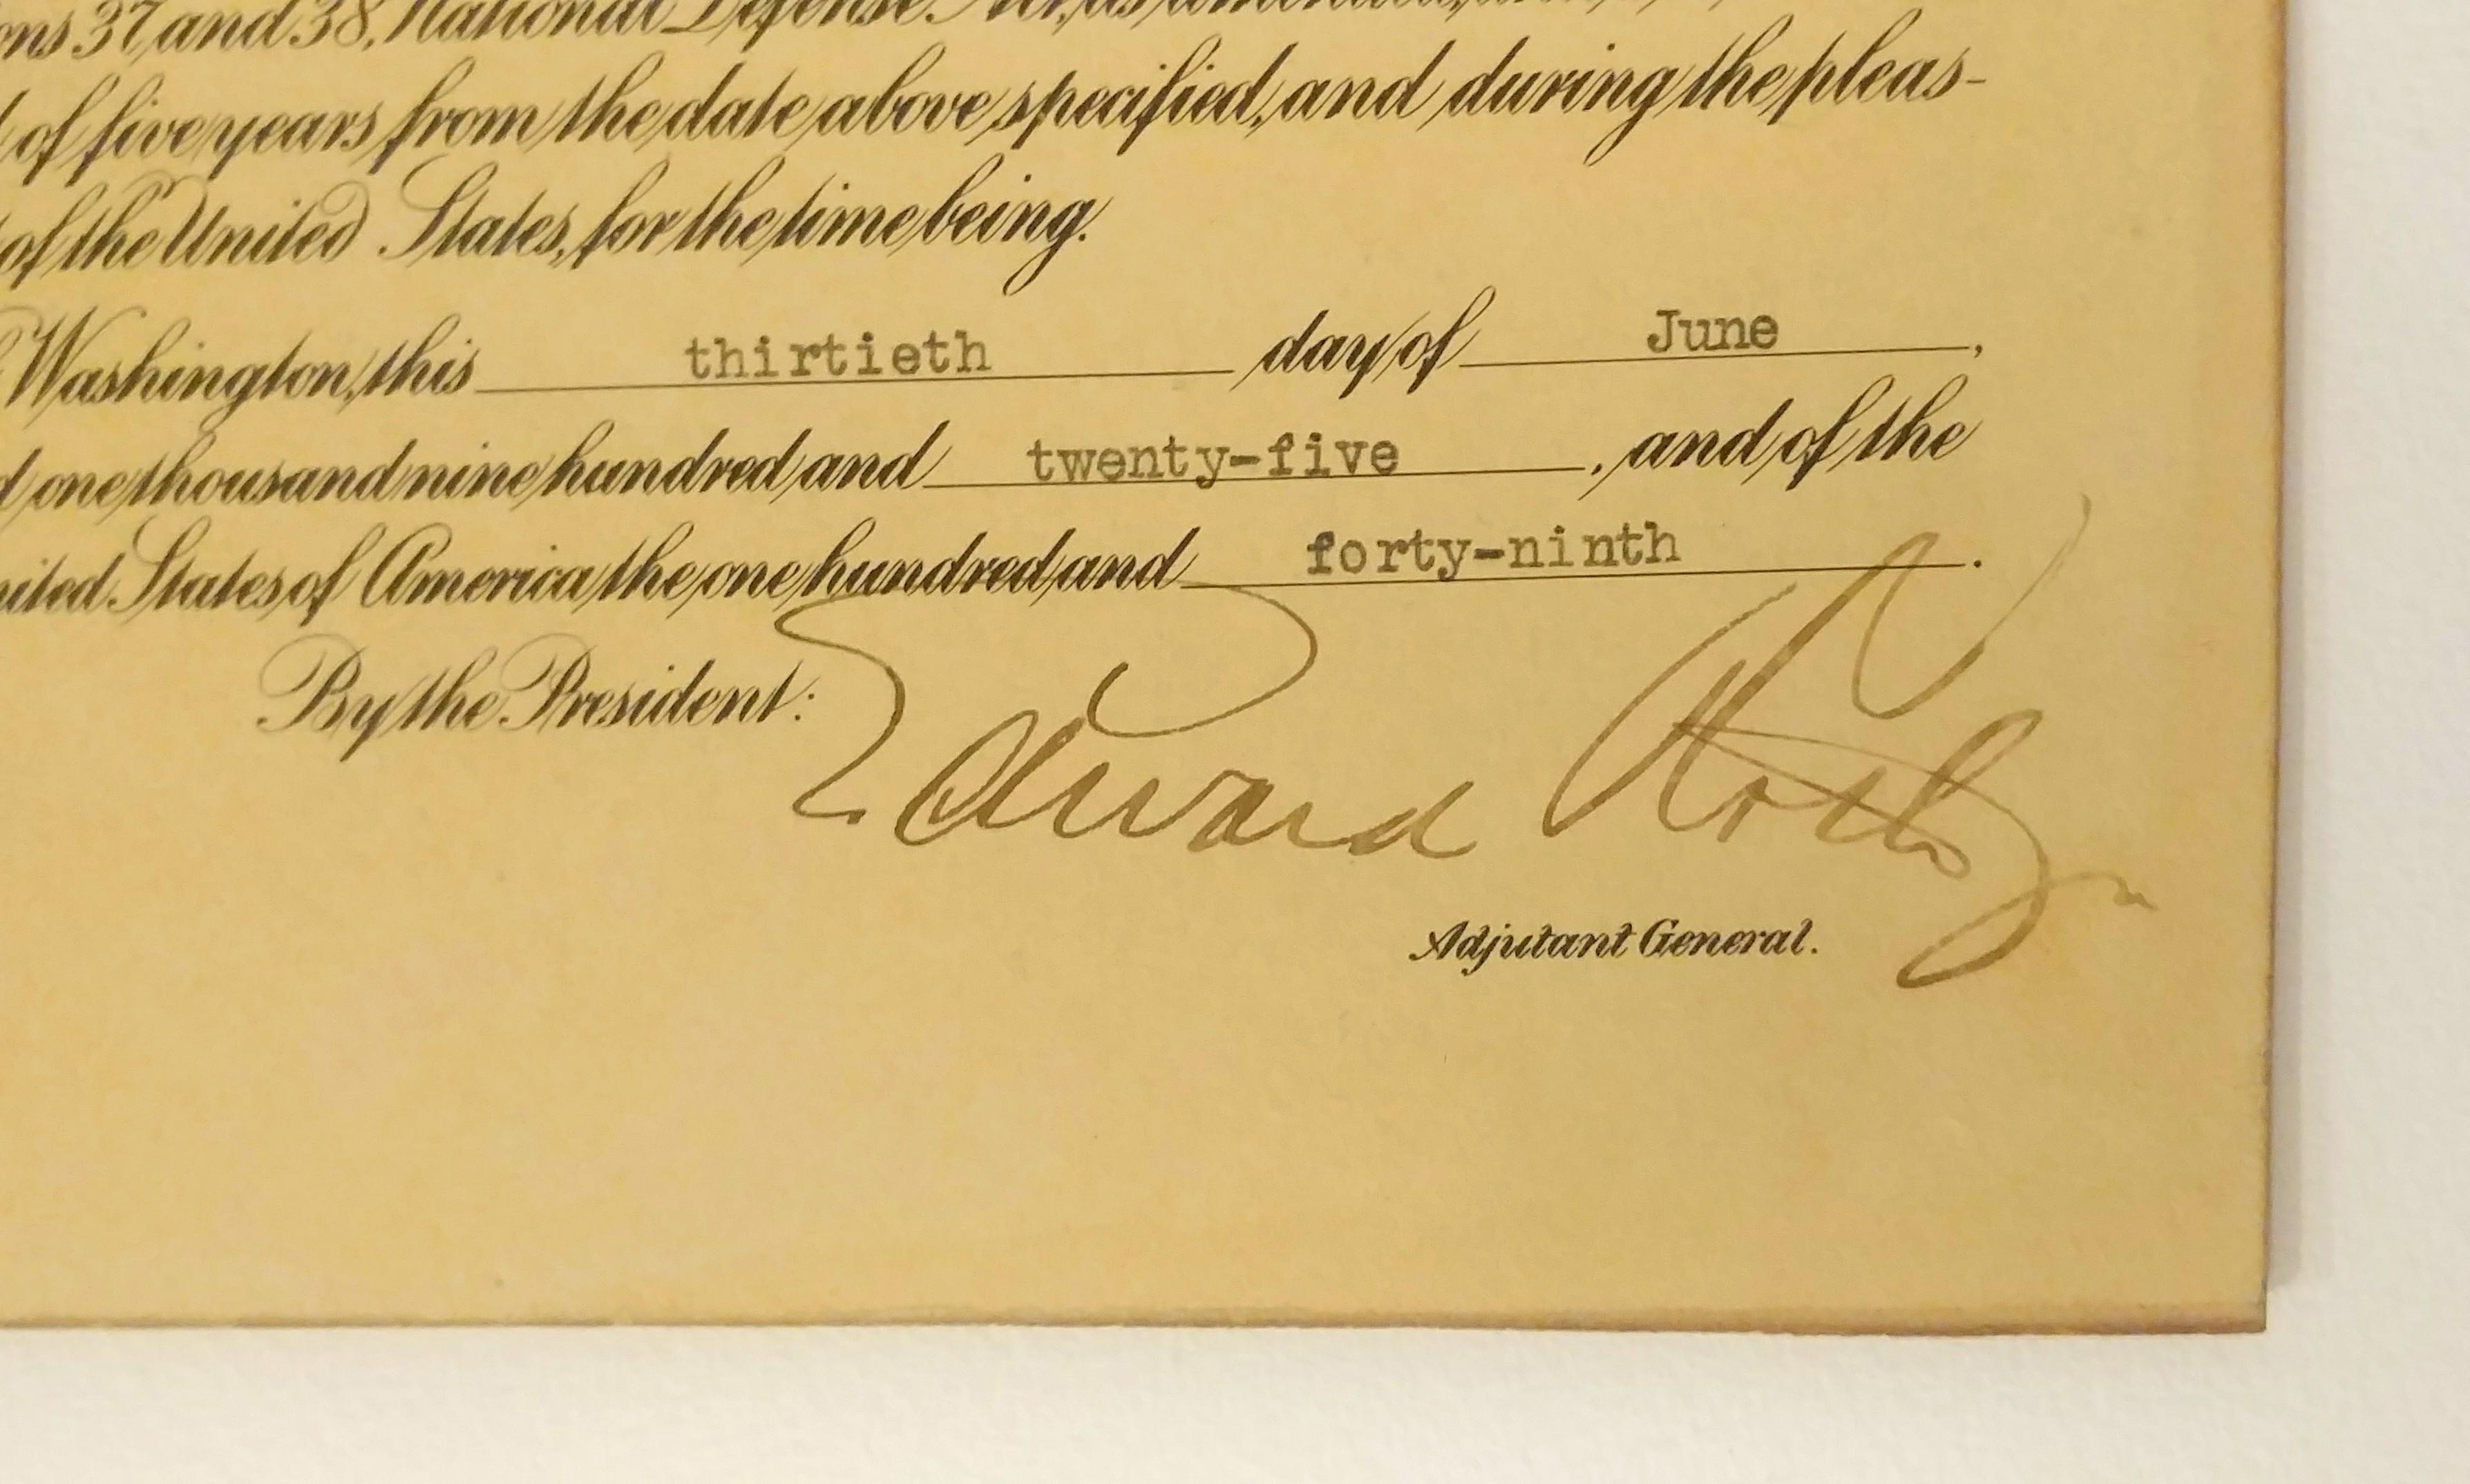 37 and 38, National Defense Act, as amended,
of five years from the date above specified, and during the pleas-
of the United States, for the time being.
Washington, this thirtieth day of June,
one thousand nine hundred and twenty-five, and of the
States of America the one hundred and forty-ninth.
By the President:
Edward
Adjutant General.